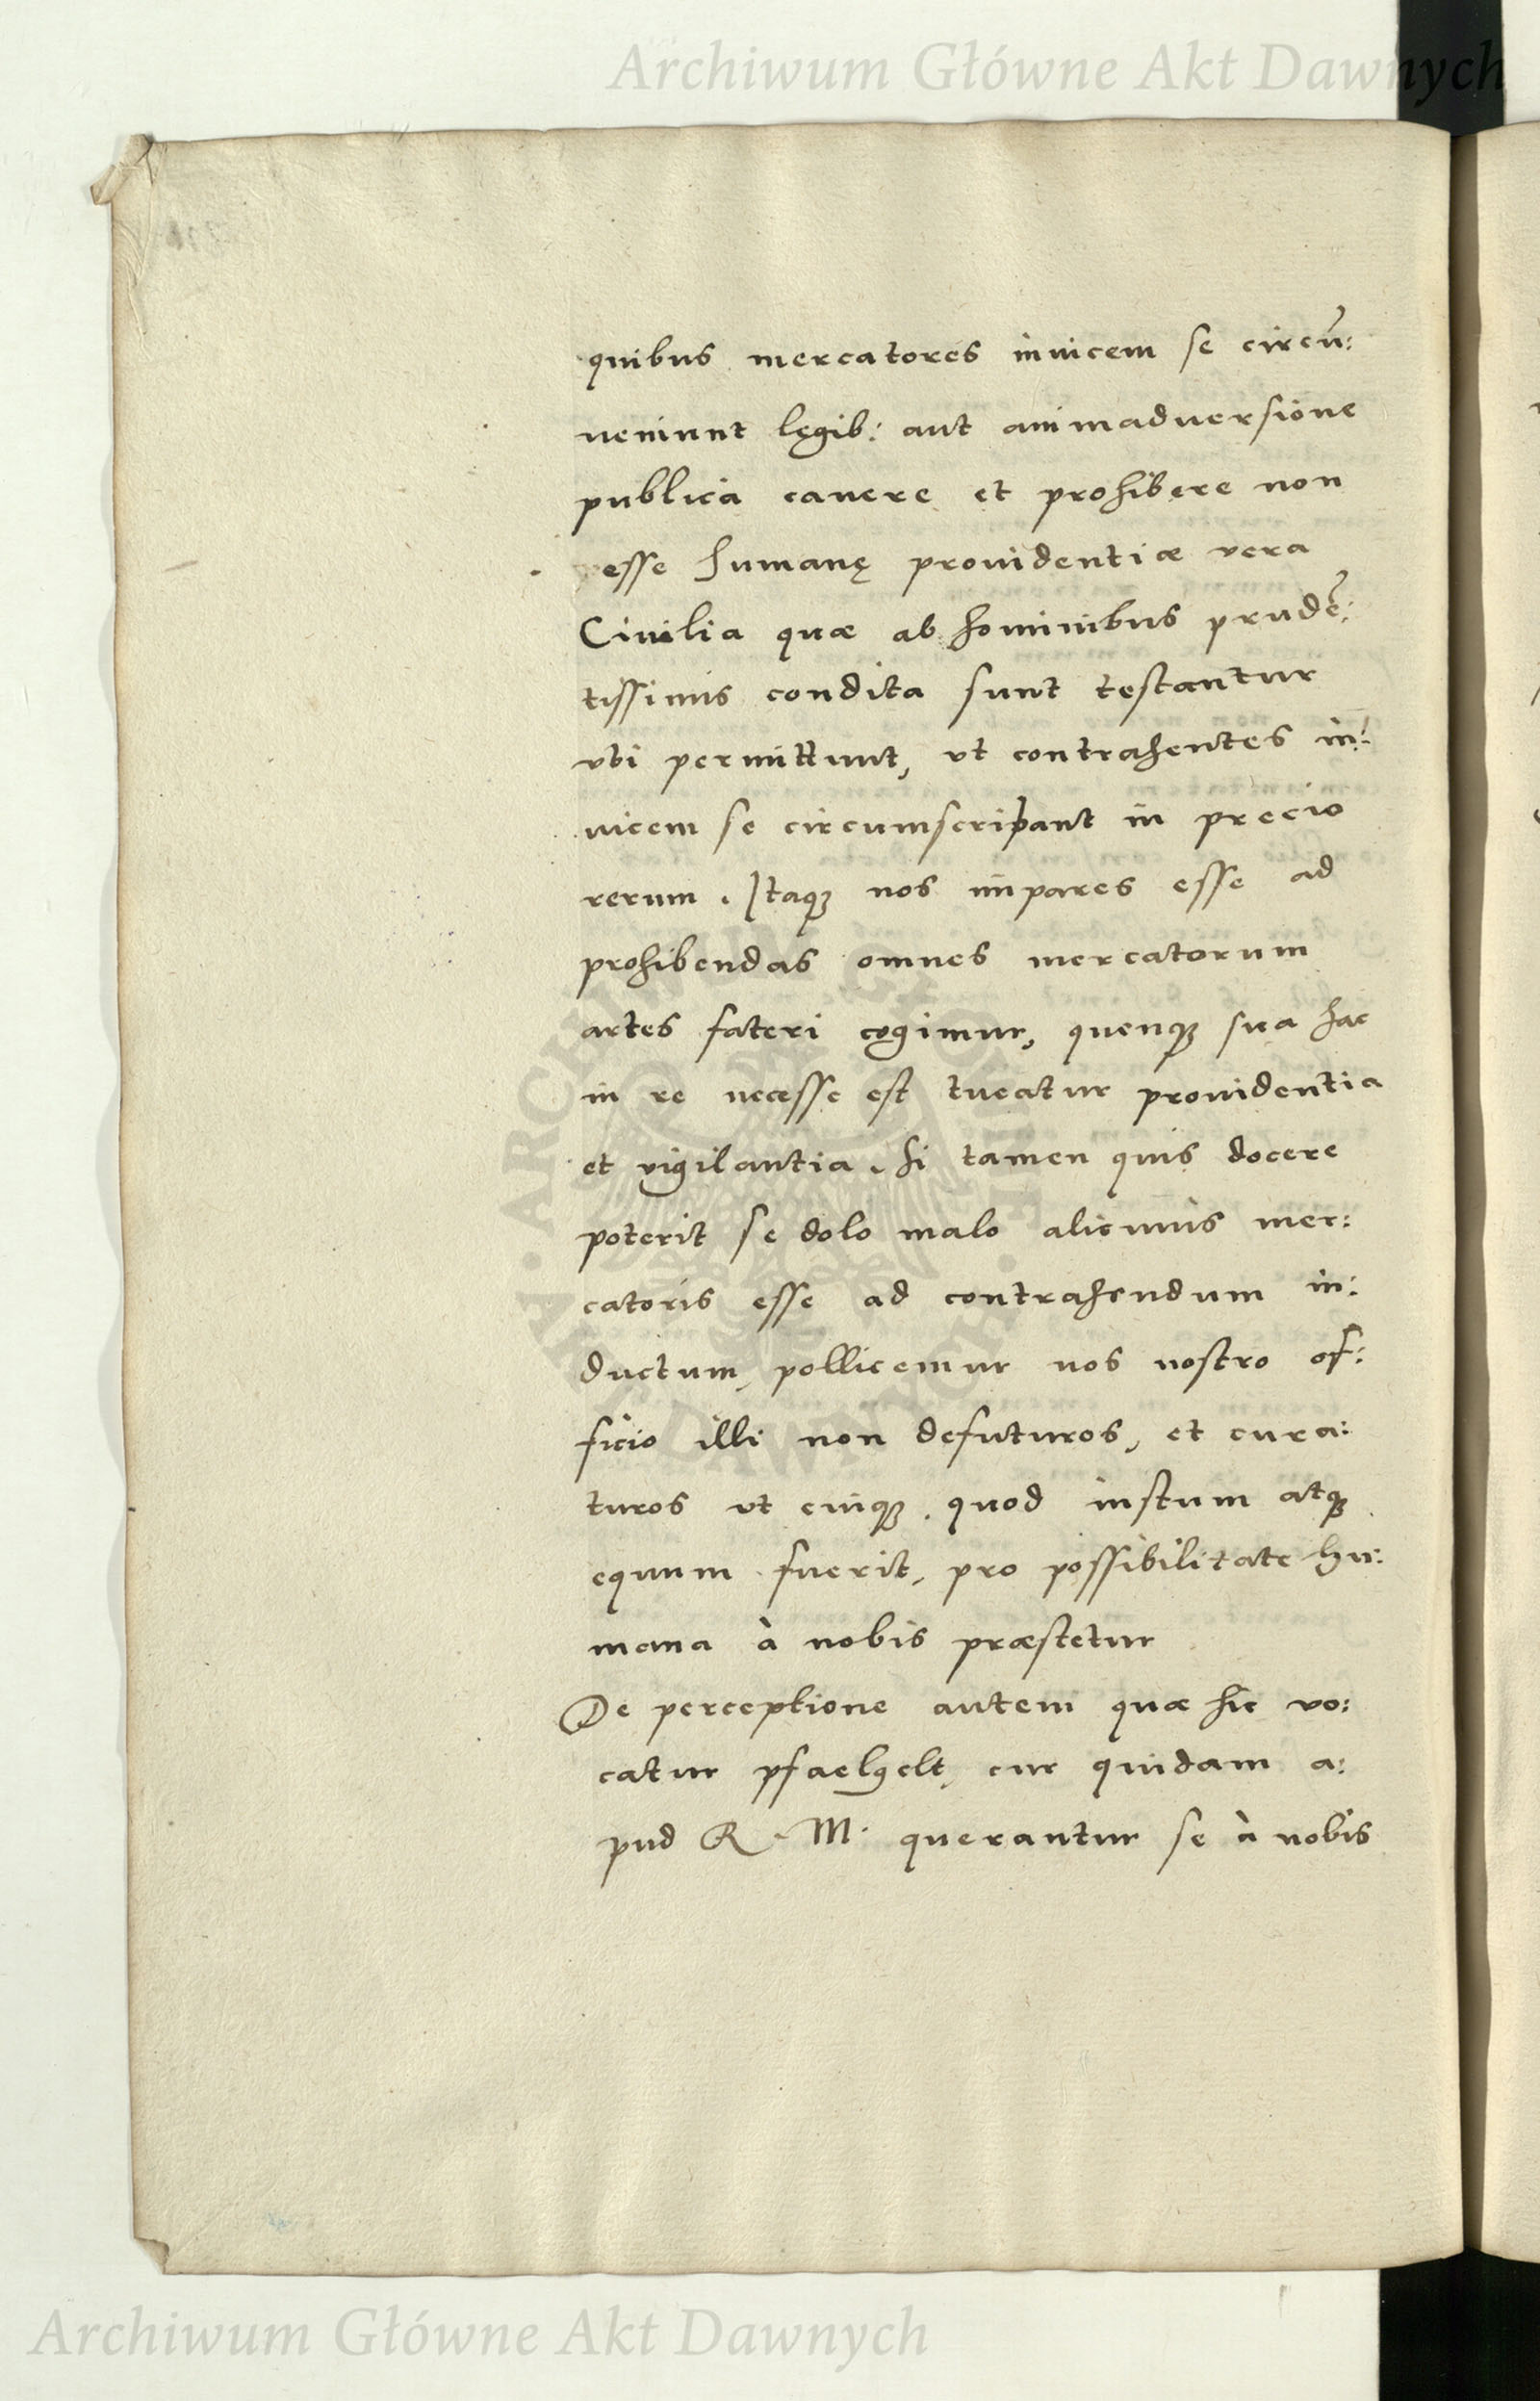 Archiwum Główne Akt Dawnych
quibus mercatores inuicem se circū:
ueniunt legib: aut animaduersione
publica cauere et prohibere non
esse humanę prouidentiæ vera
Ciuilia quæ ab hominibus prudē:
tissimis condita sunt testantur
vbi permittunt, vt contrahentes in:
uicem se circumscripant in precio
rerum. Itaqȝ nos impares esse ad
prohibendas omnes mercatorum
artes fateri cogimur, quenqȝ sua hac
in re necesse est tueatur prouidentia
et vigilantia. Si tamen quis docere
poterit se dolo malo alicuius mer:
catoris esse ad contrahendum in:
ductum, pollicemur nos nostro of:
ficio illi non defuturos, et cura:
turos vt cuiqȝ quod iustum atqȝ
equum fuerit, pro possibilitate hu:
mana à nobis præstetur
De perceptione autem quæ hic vo:
catur pfaelgelt, cur quidam a:
pud R. M. querantur se à nobis
ARCHIWUM GŁÓWNE AKT DAWNYCH
Archiwum Główne Akt Dawnych